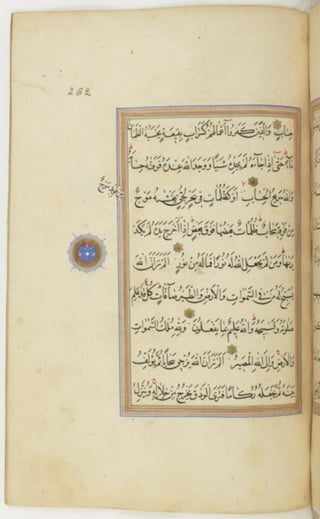 262
حِسَابٍ وَالَّذِينَ كَفَرُوا أَعْمَالُهُمْ كَسَرَابٍ بِقِيعَةٍ يَحْسَبُهُ الظَّمْآنُ
مَاءً حَتَّى إِذَا جَاءَهُ لَمْ يَجِدْهُ شَيْئًا وَوَجَدَ اللهَ عِنْدَهُ فَوَفَّاهُ حِسَابَهُ
وَاللهُ سَرِيعُ الْحِسَابِ أَوْ كَظُلُمَاتٍ فِي بَحْرٍ لُجِّيٍّ يَغْشَاهُ مَوْجٌ
من فوقه موج
مِنْ فَوْقِهِ سَحَابٌ ظُلُمَاتٌ بَعْضُهَا فَوْقَ بَعْضٍ إِذَا أَخْرَجَ يَدَهُ لَمْ يَكَدْ
يَرَاهَا وَمَنْ لَمْ يَجْعَلِ اللهُ لَهُ نُورًا فَمَا لَهُ مِنْ نُورٍ أَلَمْ تَرَ أَنَّ اللهَ
يُسَبِّحُ لَهُ مَنْ فِي السَّمٰوَاتِ وَالْأَرْضِ وَالطَّيْرُ صَافَّاتٍ كُلٌّ قَدْ عَلِمَ
صَلَوتَهُ وَتَسْبِيحَهُ وَاللهُ عَلِيمٌ بِمَا يَفْعَلُونَ وَلِلّٰهِ مُلْكُ السَّمٰوَاتِ
وَالْأَرْضِ وَإِلَى اللهِ الْمَصِيرُ أَلَمْ تَرَ أَنَّ اللهَ يُزْجِي سَحَابًا ثُمَّ يُؤَلِّفُ
بَيْنَهُ ثُمَّ يَجْعَلُهُ رُكَامًا فَتَرَى الْوَدْقَ يَخْرُجُ مِنْ خِلَالِهِ وَيُنَزِّلُ